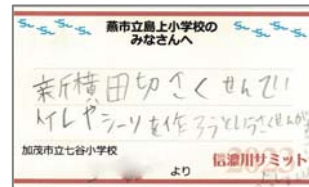 燕市立島上小学校の
みなさんへ
新横田切さくせんでい
トイレやシーツを作ろうというさくせんが
加茂市立七谷小学校
より
信濃川サミット